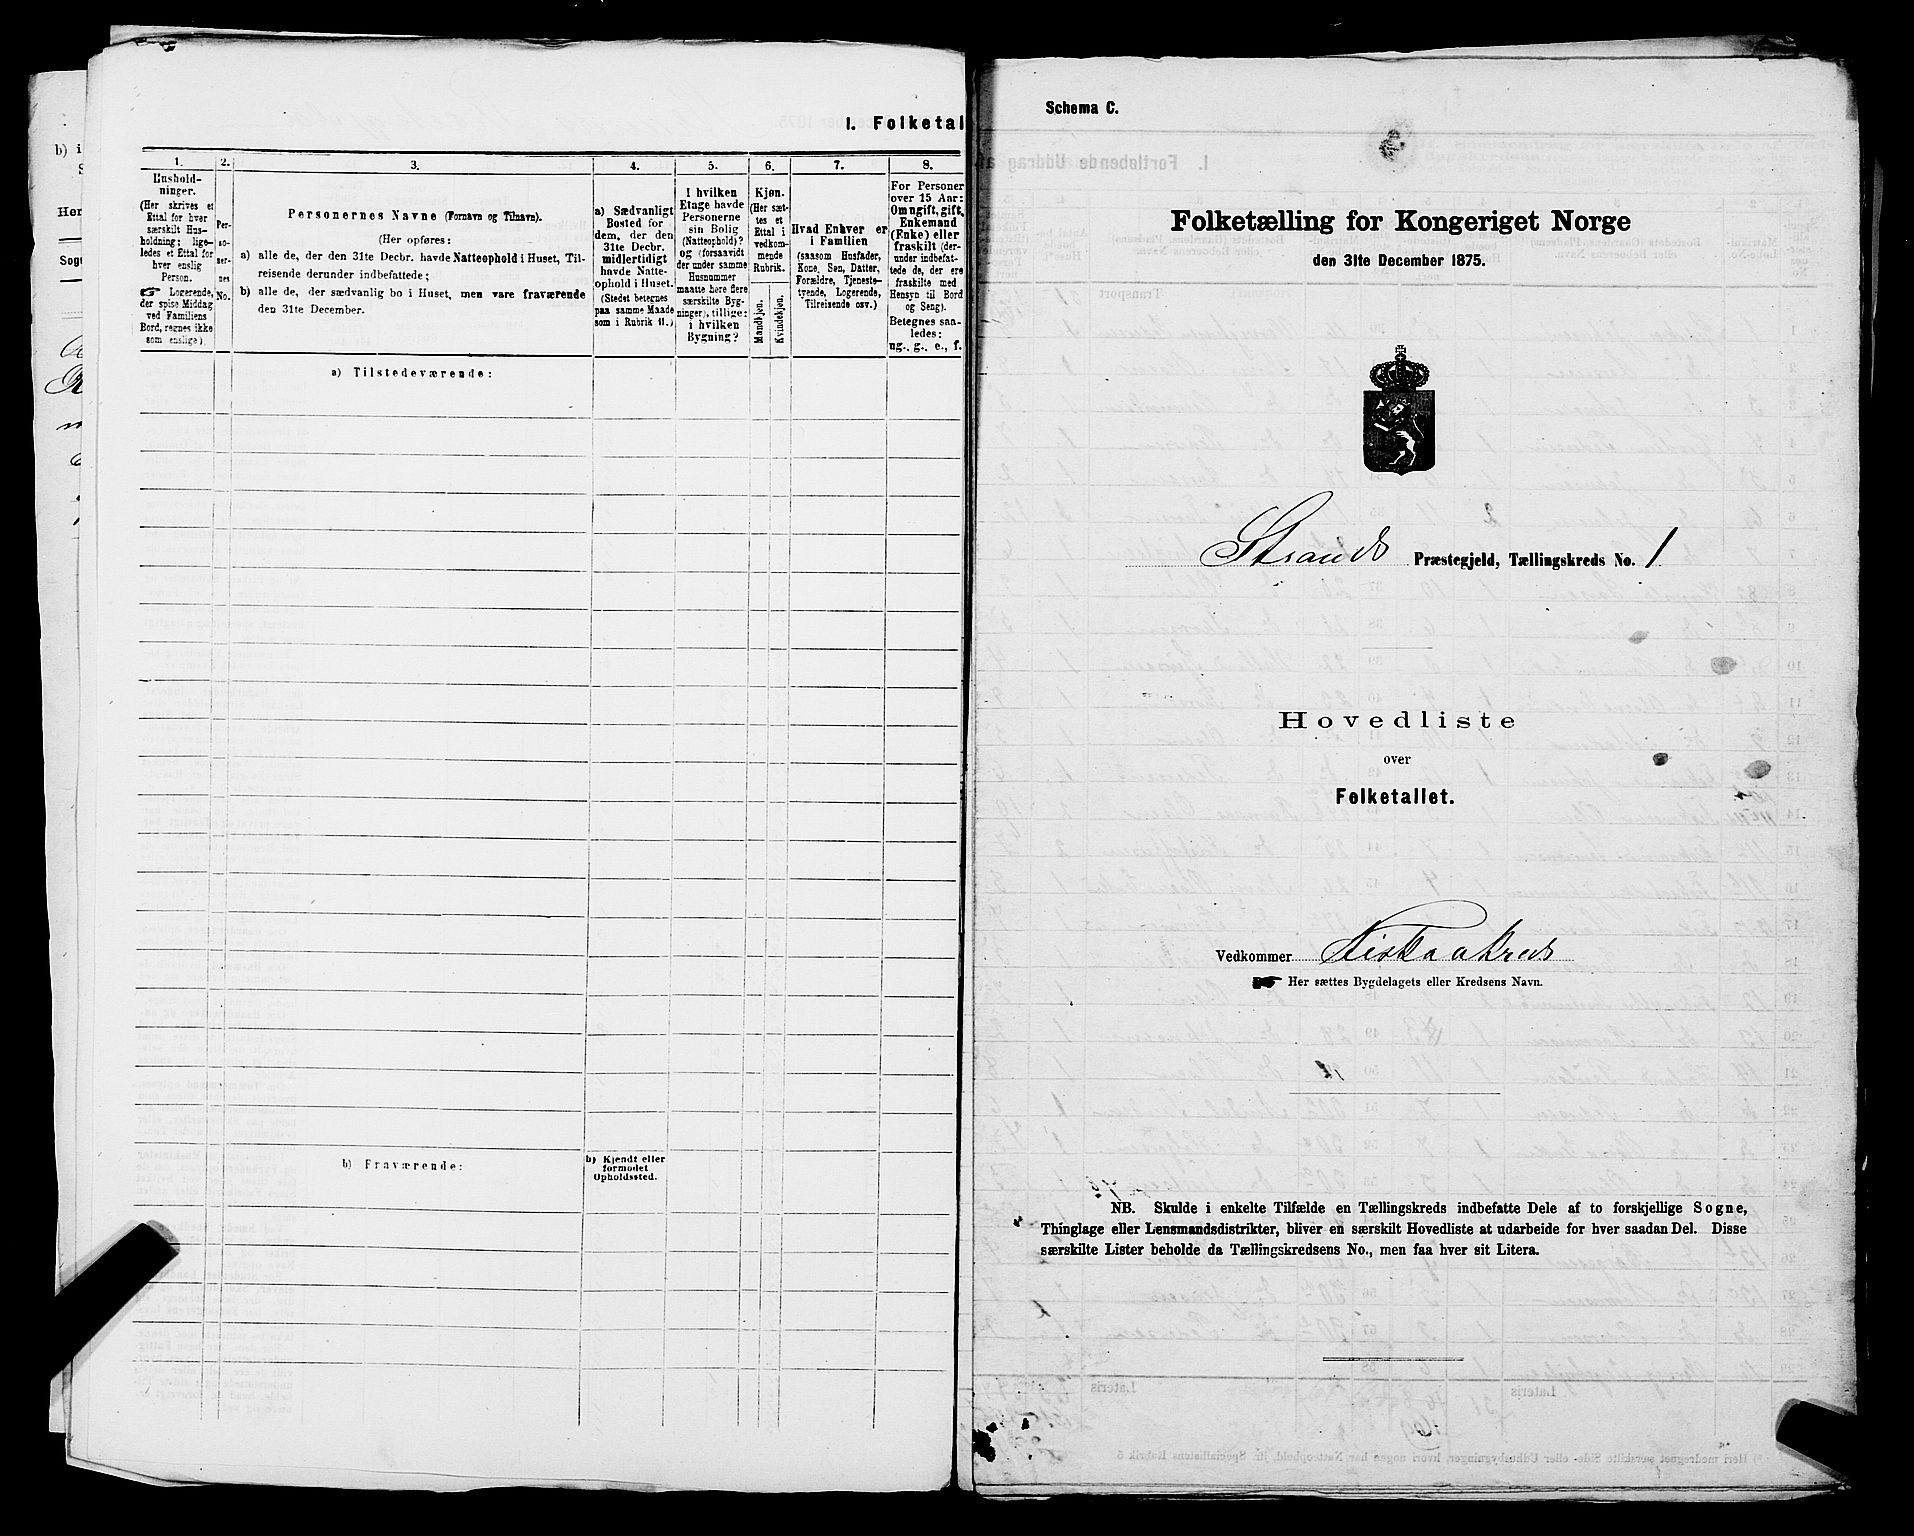 I. Folketal
1.
2.
3.
4.
5.
6.
7.
8.
Hushold-
ninger.
(Her skrives et
Ettal for hver
særskilt Hus-
holdning; lige-
ledes et Ettal for
hver enslig
Person.
Logerende,
der spise Middag
ved Familiens
Bord, regnes ikke
som enslige).
Per-
so-
ner-
nes
No.
Personernes Navne (Fornavn og Tilnavn).
(Her opføres:
a) alle de, der den 31te Decbr. havde Natteophold i Huset, Til-
reisende derunder indbefattede;
b) alle de, der sædvanlig bo i Huset, men vare fraværende
den 31te December.
a) Sædvanligt
Bosted for
dem, der den
31te Decbr.
midlertidigt
havde Natte-
ophold i Huset.
(Stedet betegnes
paa samme Maade
som i Rubrik 11.)
I hvilken
Etage havde
Personerne
sin Bolig
(Natteophold)?
og (forsaavidt
der under samme
Husnummer
maatte høre flere
særskilte Byg-
ninger), tillige:
i hvilken
Bygning?
Kjøn.
(Her sæt-
tes et
Ettal i
vedkom-
mende
Rubrik.
Mandkjøn.
Kvindekjøn.
Hvad Enhver er
i Familien
(saasom Husfader,
Kone, Søn, Datter,
Forældre, Tjeneste-
tyende, Logerende,
Tilreisende osv.)
For Personer
over 15 Aar:
Om ugift, gift,
Enkemand
(Enke) eller
fraskilt (der-
under indbefat-
tede de, der ere
fraskilte med
Hensyn til Bord
og Seng).
Betegnes saa-
ledes:
ug., g., e., f.
a) Tilstedeværende:
b) Fraværende:
b) Kjendt eller
formodet
Opholdssted.
Schema C.
Folketælling for Kongeriget Norge
den 31te December 1875.
Strands Præstegjeld, Tællingskreds No. 1
Hovedliste
over
Folketallet.
Vedkommer
Her sættes Bygdelagets eller Kredsens Navn.
NB. Skulde i enkelte Tilfælde en Tællingskreds indbefatte Dele af to forskjellige Sogne,
Thinglage eller Lensmandsdistrikter, bliver en særskilt Hovedliste at udarbeide for hver saadan Del. Disse
særskilte Lister beholde da Tællingskredsens No., men faa hver sit Litera.